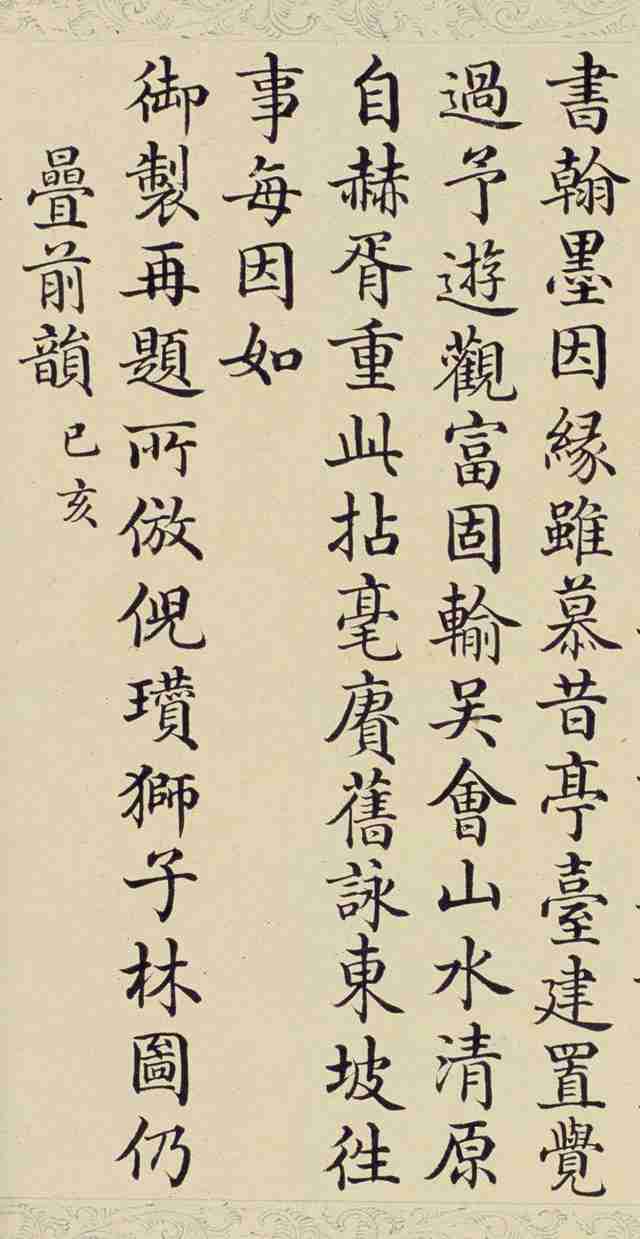 書翰墨因緣雖慕昔亭臺建置覺
過予遊觀富固輸吴會山水清原
自赫胥重此拈毫賡舊詠東坡徃
事每因如
御製再題所倣倪瓚獅子林圖仍
疊前韻已亥